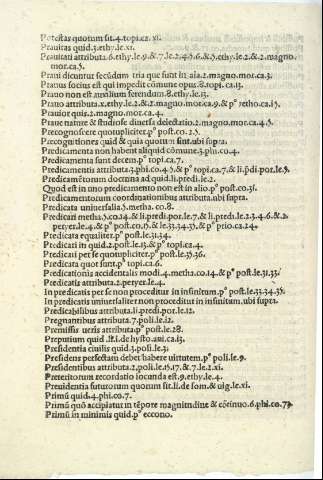 Potestas quotum sit.4.topi.ca.xi.
Prauitas quid.3.ethy.le.xi.
Prauitati attributa.6.ethy.le.9.&.7.le.2.4.5.6.&.5.ethy.le.2.&.2.magno.
mor.ca.5.
Praui dicuntur secūdum tria que sunt in aīa.2.magno.mor.ca.3.
Prauus socius est qui impedit cōmune opus.8.topi.ca.13.
Prauo non est auxilium ferendum.8.ethy.le.13.
Prauo attributa.x.ethy.le.2.&.2.magno.mor.ca.9.& pº retho.ca.15.
Prauior quis.2.magno.mor.ca.4.
Praue nature & studiose diuersa delectatio.2.magno.mor.ca.4.5.
Precognoscere quotupliciter.pº post.co.2.5.
Precognitiones quid & quia quotum sunt.ubi supra.
Predicamenta non habent aliquid cōmune.3.phi.co.4.
Predicamenta sunt decem.pº topi.ca.7.
Predicamentis attributa.3.phi.co.4.5.& pº topi.ca.7.& li.pdi.por.le.5.
Predicamētorum doctrina ad quid.li.predi.le.2.
Quod est in uno predicamento non est in alio.pº post.co.31.
Predicamentorum coordinationibus attributa.ubi supra.
Predicata uniuersalia.5.metha.co.8.
Predicari metha.5.co.14.& li.predi.por.le.7.& li.predi.le.2.3.4.6.&.2.
peryer.le.4.& pº post.co.15.& le.33.34.35.& pº prio.ca.24.
Predicata equaliter.pº post.le.31.34.
Predicari in quid.2.post.le.13.& pº topi.ca.4.
Predicari per se quotupliciter.pº post.le.35.36.
Predicata quot sunt.pº topi.ca.6.
Predicationis accidentalis modi.4.metha.co.14.& pº post.le.31.33.
Predicatis attributa.2.peryer.le.4.
In predicatis per se non proceditur in infinitum.pº post.le.33.34.35.
In predicatis uniuersaliter non proceditur in infinitum.ubi supra.
Predicabilibus attributa.li.predi.por.le.12.
Pregnantibus attributa.7.poli.le.12.
Premissis ueris attributa.pº post.le.28.
Preputium quid.li.i.de hysto.ani.ca.13.
Presidentia ciuilis quid.3.poli.le.3.
Presidens perfectam debet habere uirtutem.pº poli.le.9.
Presidentibus attributa.2.poli.le.15.17.&.7.le.2.xi.
Preteritorum recordatio iocunda est.9.ethy.le.4.
Preuidentia futurorum quotum sit.li.de som.& uig.le.xi.
Primū quid.4.phi.co.7.
Primū quō accipiatur in tēpore magnitudine & cōtinuo.6.phi.co.73.
Primū in minimis quid.pº eccono.